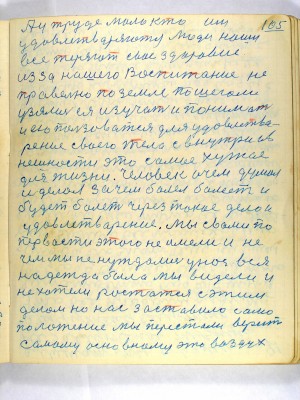 А у труде мало кто им 165
удовлетваряются Люди наши
все теряют свае здаровие
из за нашего Воспитание не
правелно по земле пощегали
узялися изучат и понимат
и его ползоватся для удовлетва-
рение своего тела с внутри и в
нешности это самае хужае
для жизни. Человек о чем думал
и делал За чем болел болеет и
будет болет через такое дело и
удовлетварение. Мы с вами по
первости этого не амели и не
чем мы не нуждалис у нас вся
надежда была мы видели и
не хотели ростатся с этим
делом но нас заставило само
положение мы перестали верит
самому основному это воздух